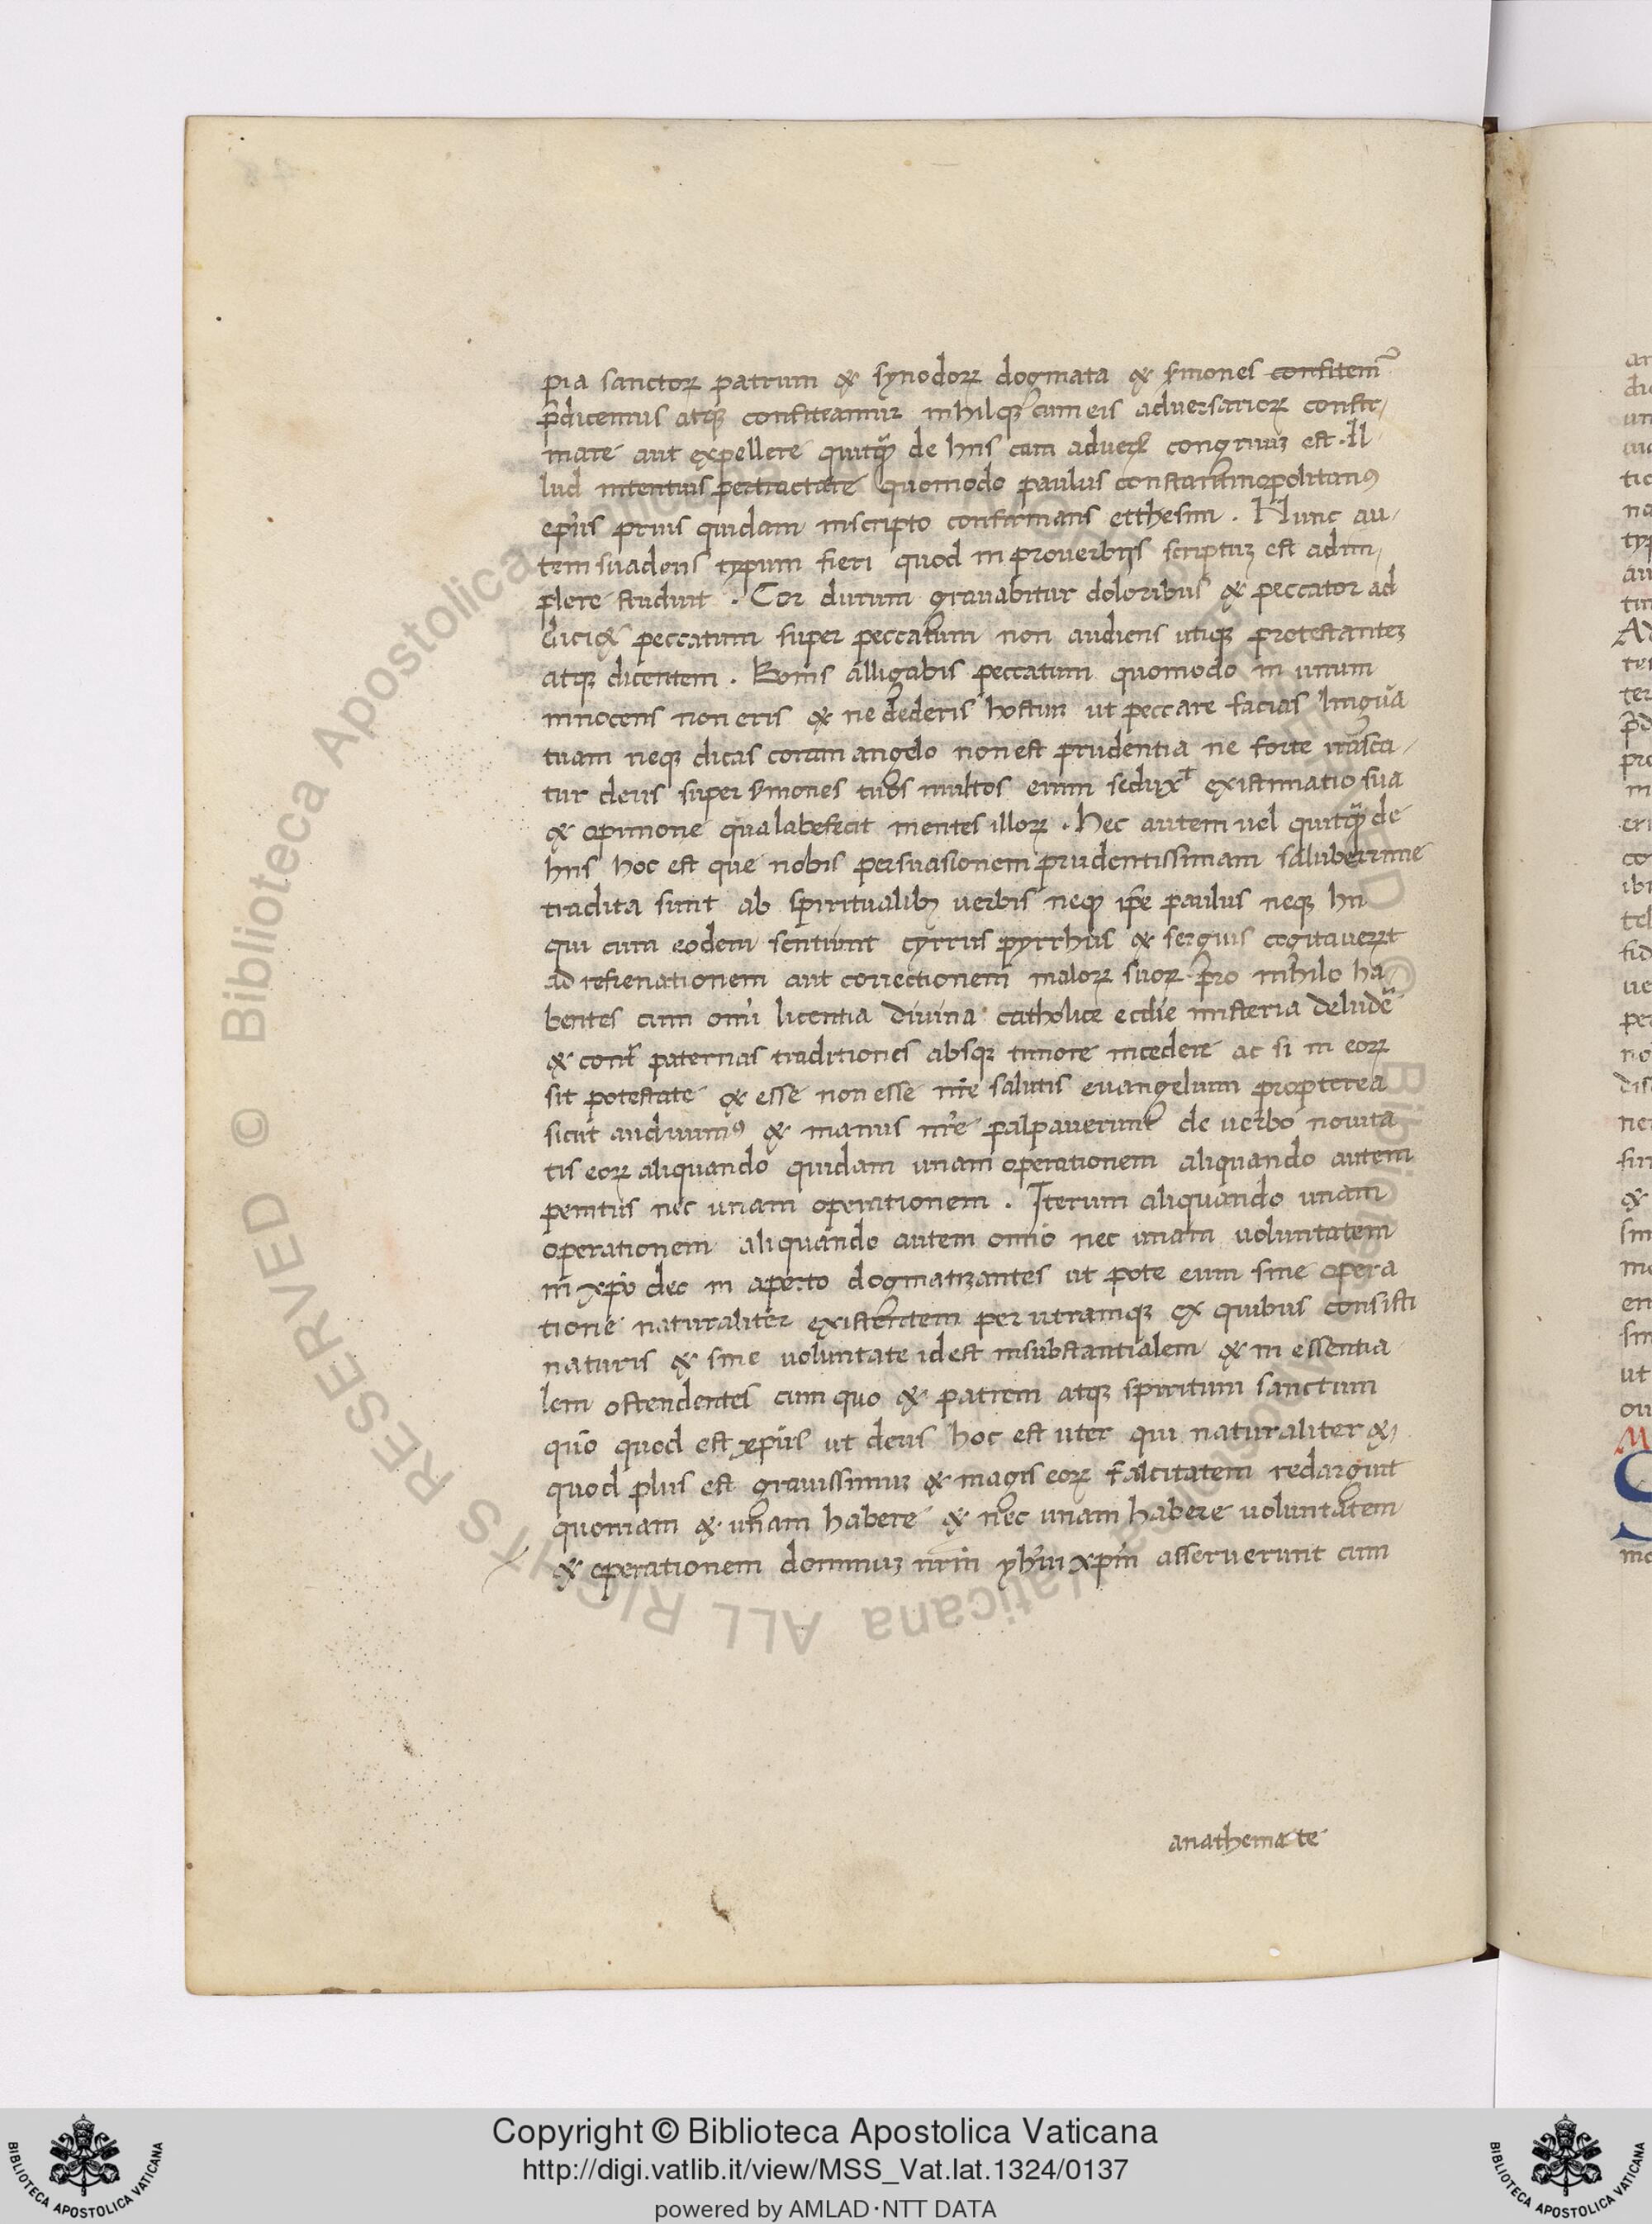 pia sanctoꝝ patrum & synodoꝝ dogmata & ẜmones confitem̃
p̄dicemus atqꝫ confiteamur nihilqꝫ cum eis adversarioꝝ confir-
mare aut expellere quitq̃ de hiis cum adueꝝ congruuꝫ est. Il
lud intentius pertractare quomodo paulus constantinopolitanꝰ
ep̃us prius quidam inscripto confirmans ecthesim. Nunc au-
tem suadens typum fieri quod in proverbijs scriptuꝫ est adim-
plere studuit. Cor durum gravabitur doloribus & peccator ad
iciet peccatum super peccatum non audiens utiqꝫ protestanteꝫ
atqꝫ dicentem. alligabis peccatum quomodo in unum
innocens non eris & ne dederis hostium ut peccare facias linguã
tuam neqꝫ dicas coram angelo non est prudentia ne forte irasca-
tur deus super ẜmones tuos multos enim sedux̃t existimatio sua
& opinone qua labefecit mentes illoꝝ. Hec autem vel quitq̃ de
hiis hoc est que nobis persuasionem prudentissimam saluberrime
tradita sunt ab spiritualibꝫ verbis neqꝫ ip̃e paulus neqꝫ hii
qui cum eodem sentiunt cyrrus pyrrhus & sergius cogitaveꝝt
ad refrenationem aut correctionem maloꝝ suoꝝ pro nihilo ha
bentes cum om̃i licentia divina catholice eccl̃ie misteria deludẽ
& cont̃ paternas traditiones absqꝫ timore incedere ac si in eoꝝ
sit potestate & esse non esse nr̃e salutis euangelium propterea
sicut audivimꝰ & manus nr̃e palpaverunt de verbo novita
tis eoꝝ aliquando quidam unam operationem aliquando autem
penitus nec unam operationem. Iterum aliquando unam
operationem aliquando autem om̃io nec unam voluntatem
in xp̃o dec in aperto dogmatizantes ut pote eum sine opera
tione naturaliter existentem per utramqꝫ ex quibus consisti
naturis & sine voluntate id est insubstantialem & in essentia
lem ostendentes cum quo & patrem atqꝫ spiritum sanctum
quo quod est xp̃us ut deus hoc est uter qui naturaliter &
quod plus est gravissimuꝫ & magis eoꝝ falcitatem redarguit
quoniam & unam habere & nec unam habere voluntatem
& operationem dominuꝫ nr̃m yhũ xp̃m asseruerunt cum
anathemate
Copyright © Biblioteca Apostolica Vaticana
http://digi.vatlib.it/view/MSS_Vat.lat.1324/0137
powered by AMLAD·NTT DATA